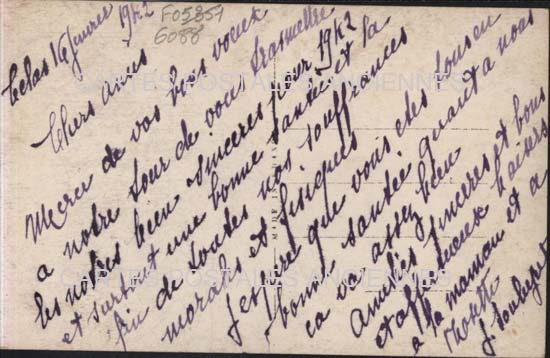 16 Janvier 1942
F05851
6088
Chers amis
Merci de vos bons voeux
a notre tour de vous trasmettre
les notres bien sinceres pour 1942
et surtout une bonne santée et la
fin de toutes nos souffrances
morales et fisiques
J'espere que vous etes tous en
bonne santée quant a nous
ca va assez bien
Amitiés sinceres et bons
et affectueux baisers
a la maman et a
CARTES POSTALES ANCIENNES
CARTES POSTALES ANCIENNES
MADE IN